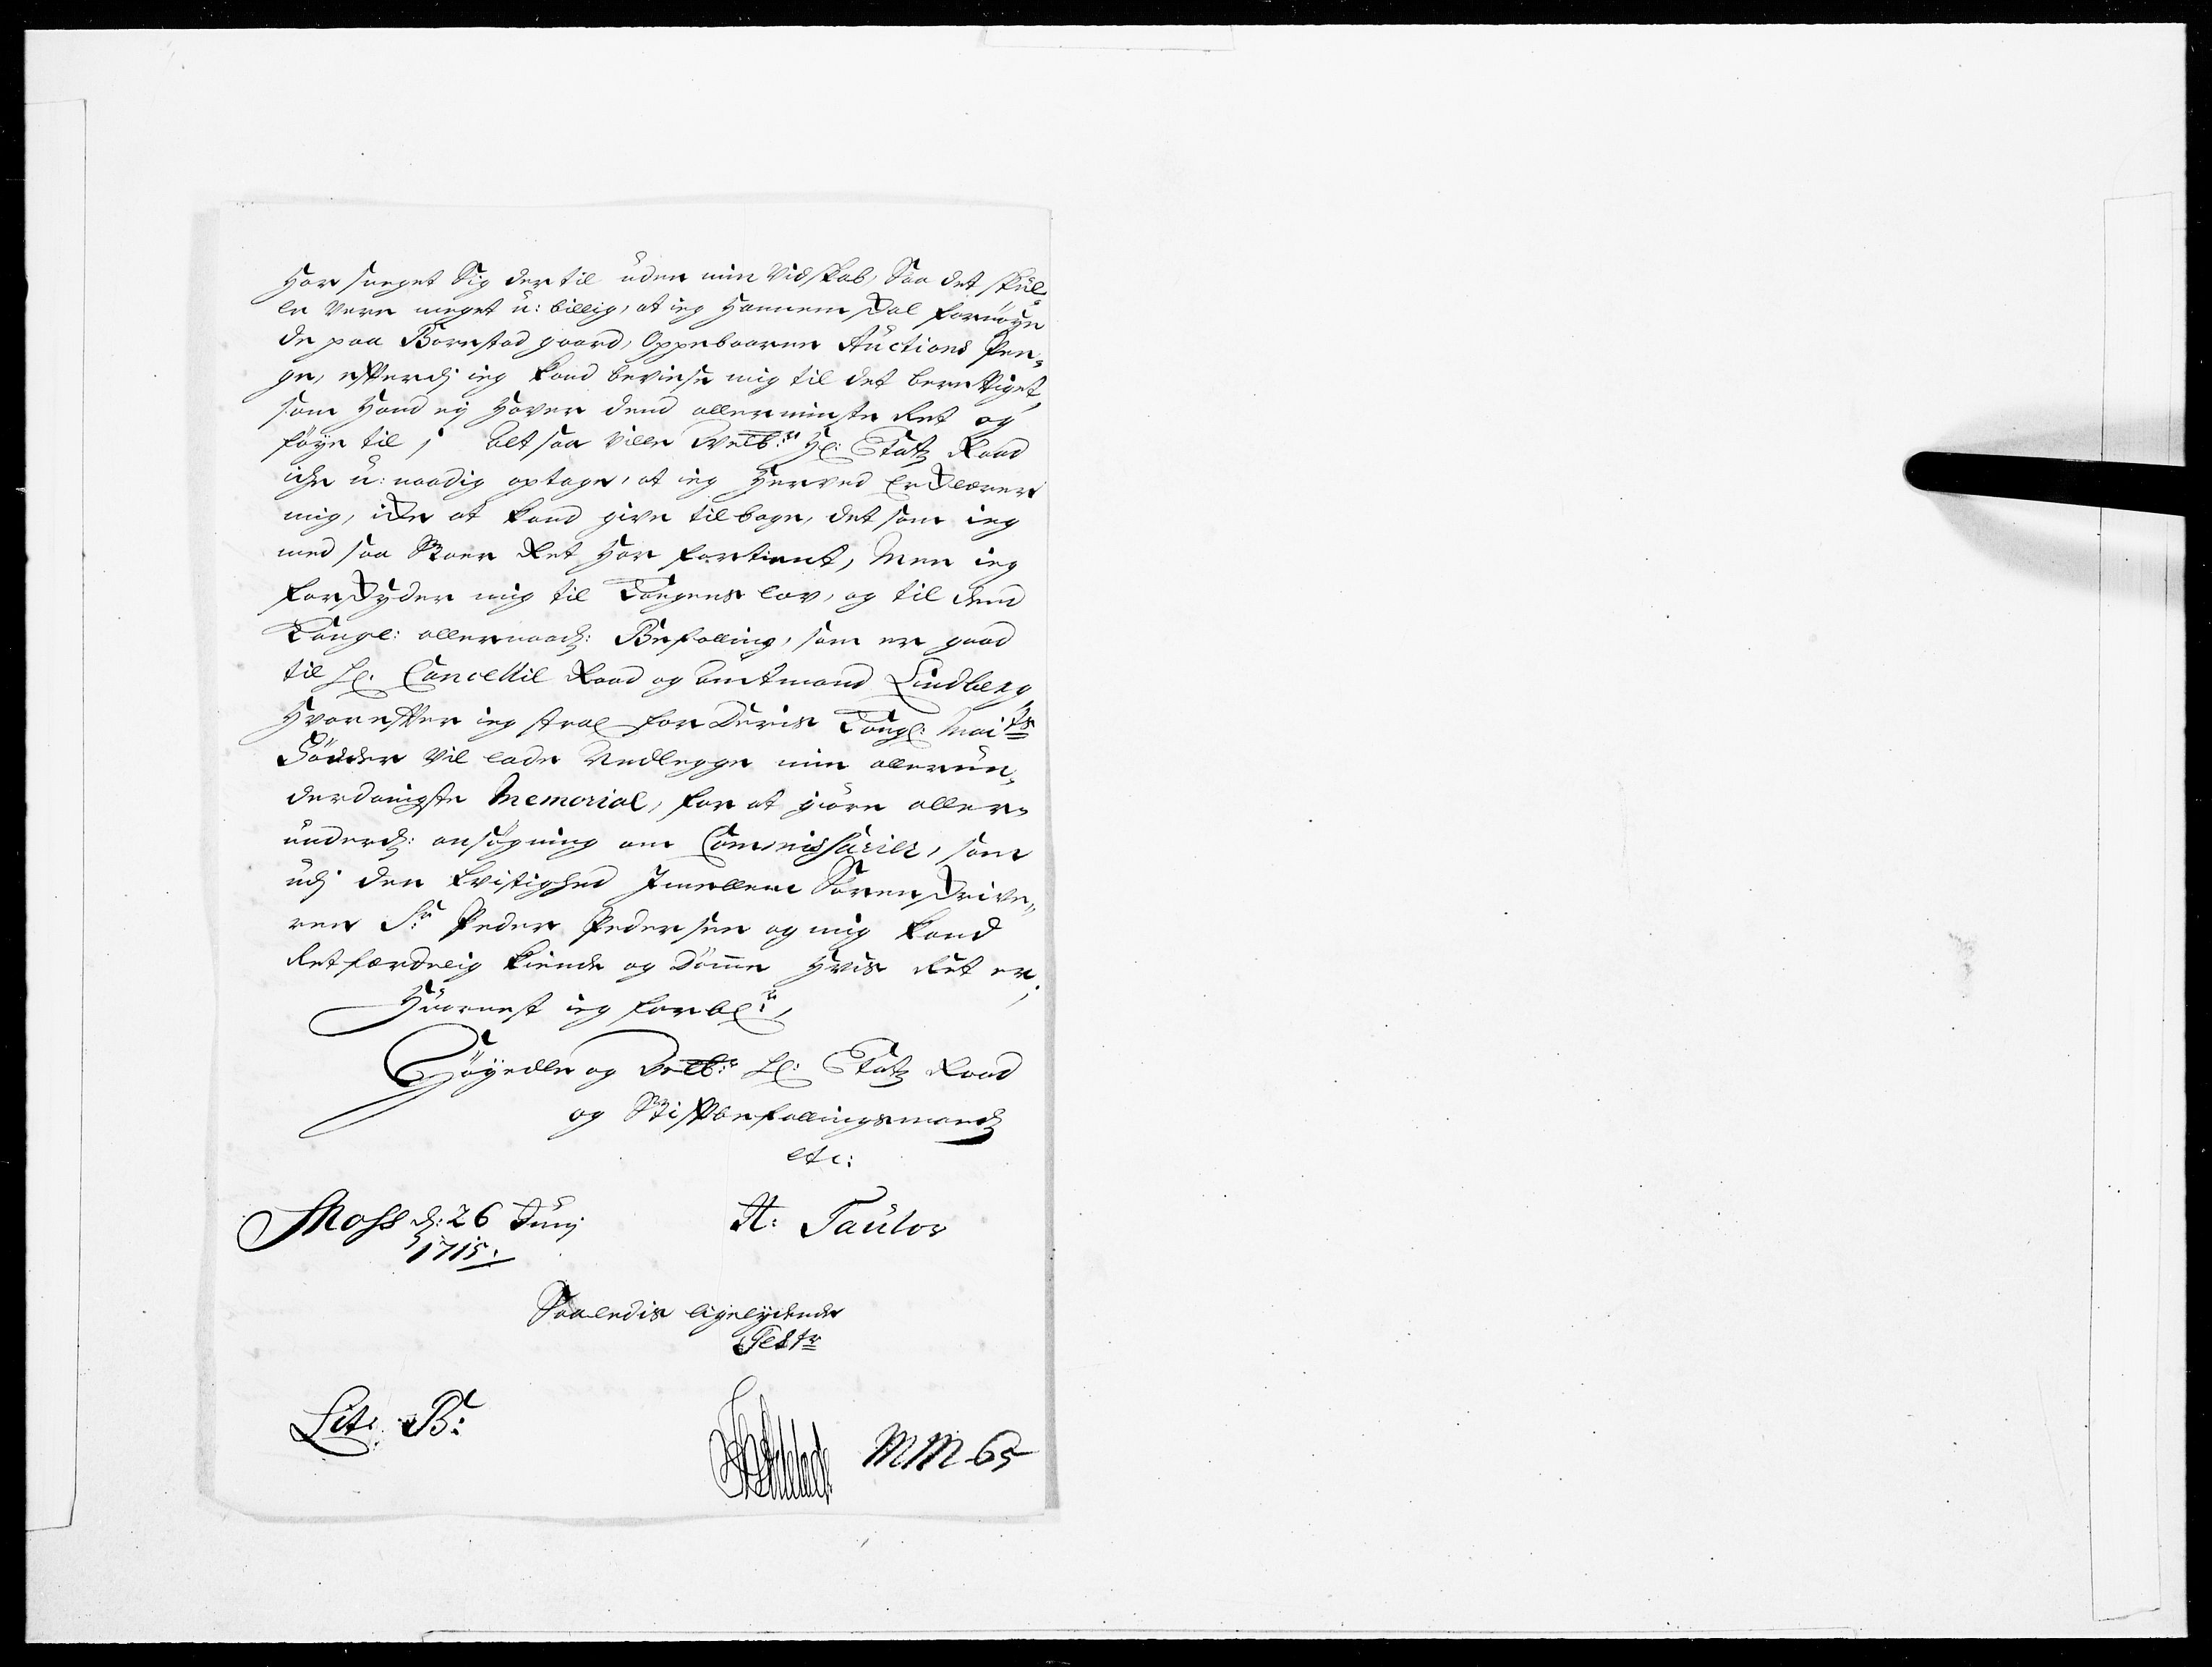 har sneget Sig der til uden min Vidskab, Saa det skul-
le Vere meget u: billig, at ieg Hannem skal fornöye
de paa Borestad gaard, Oppebaarne Auctions Pen-
ge, efterdj ieg kand beviese mig til det berettiget,
som Hand ey Haver dend allerminste Ret og
föye til, alt saa Ville Welb:e Hr: Etatz Raad
iche u: naadig optage, at ieg Herved Erklærer
mig, icke at kand give tilbage, det som ieg
med saa Stoer Ret Har fortient, Men ieg
forskyder mig til Kongens lov, og til dend
Kongl: allernaad: Befalling, som er gaaed
til Hr. Cancellie Raad og Amtmand Lindberg
Hvorefter ieg strax for Deris Kongl: Maits
Födder Vil lade Nedlegge min allerun-
derdanigste Memorial, for at giöre aller-
underd: ansögning om Commissarier, som
udj den tvistighed Imellem Sorenskrive-
ren Sr Peder Pedersen og mig kand
Retfærdelig kiende og Dömme Hvis Ret er,
Huornest ieg forblr,
Höyedle og Velb:e Hr: Etatz Raad
og Stiftbefallingsmand
etc:
Moss d: 26 Junj
1715.
A: Taulor
Saaledis ligelydende
Test
Lit: B:
MM 65